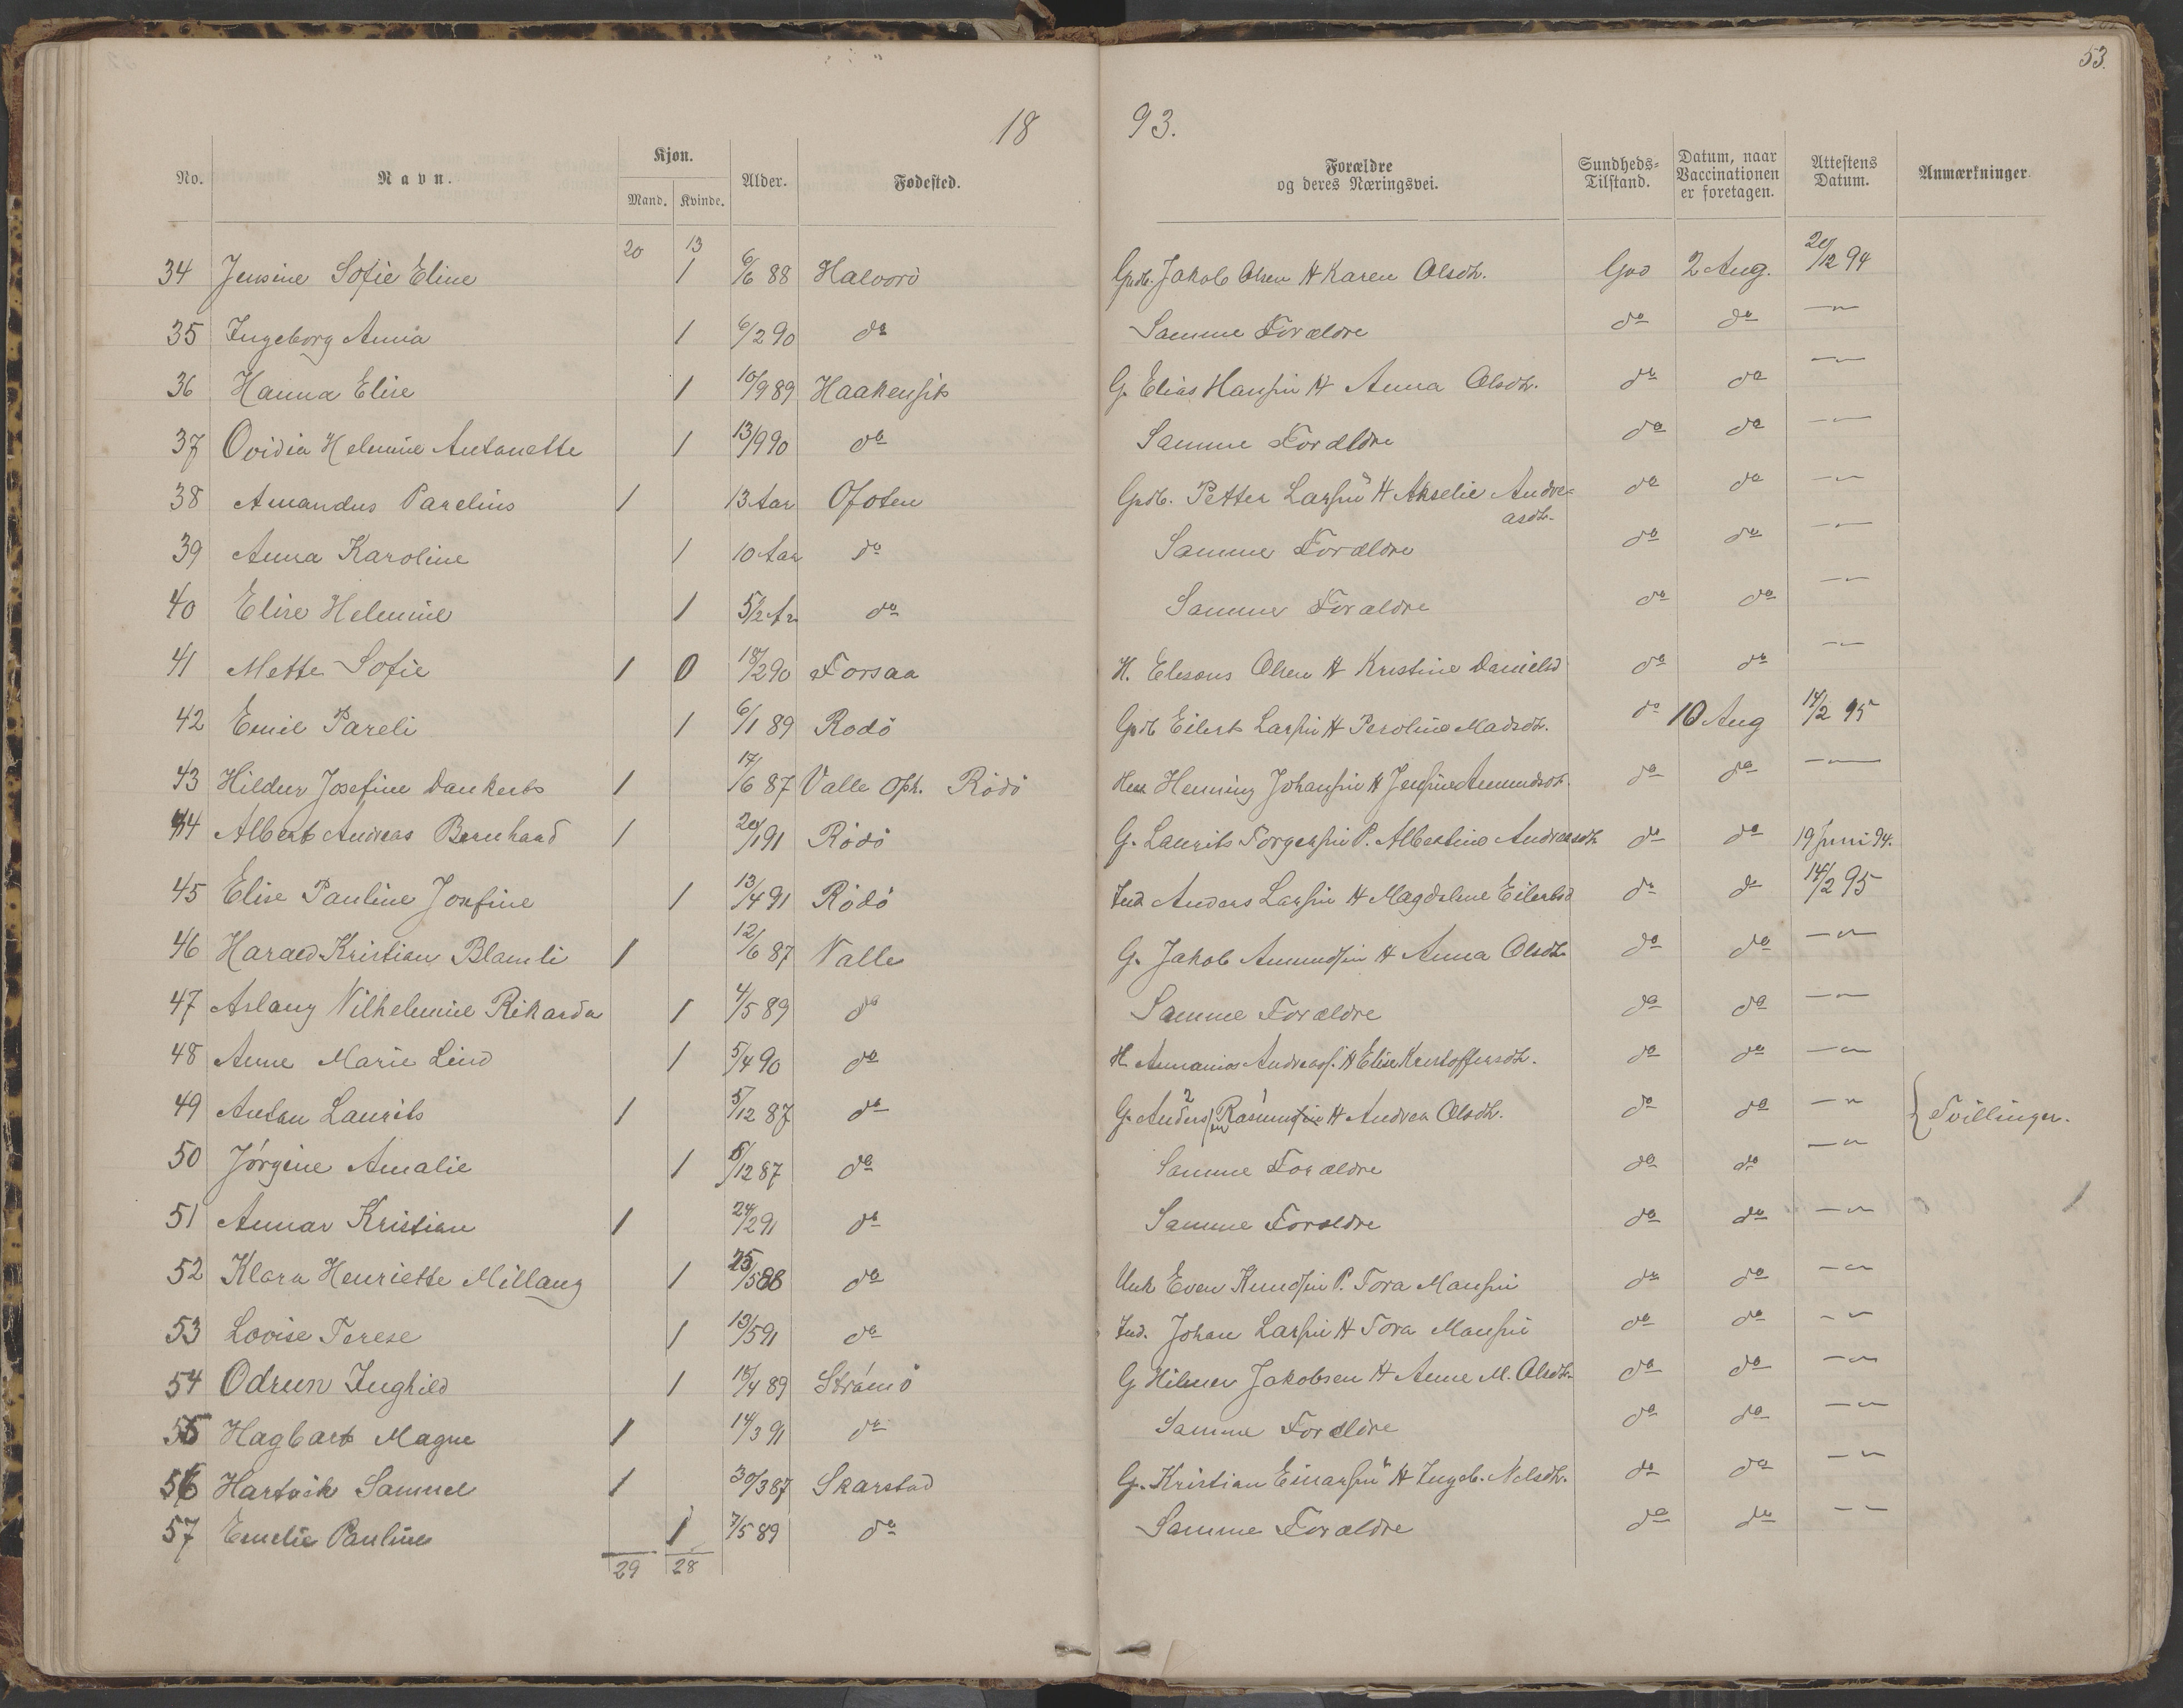 53.
18 93.
No. Navn. Kjøn. Mand. Kvinde. Alder. Fødested. Forældre og deres Næringsvei. Sundheds-Tilstand. Datum, naar Vaccinationen er foretagen. Attestens Datum. Anmærkninger.
20 13
34 Jensine Sofie Eline 1 6/6 88 Halvorö Gpdb. Jakob Olsen H Karen Olsdtr. God 2 Aug. 20/12 94
35 Ingeborg Anna 1 6/2 90 do Samme Forældre do do —"—
36 Hanna Elise 1 10/9 89 Haakensik G. Elias Hansen H Anna Olsdtr. do do —"—
37 Ovidia Helmine Antonette 1 13/9 90 do Samme Forældre do do —"—
38 Amandus Parelius 1 13 Aar Ofoten Gpdb. Petter Larsen H Akselie Andre-
asdtr. do do —"—
39 Anna Karoline 1 10 Aar do Samme Forældre do do —"—
40 Elise Helmine 1 5 1/2 Ar do Samme Forældre do do —"—
41 Mette Sofie 1 0 18/2 90 Forsaa H. Olsen H Kristine Danielsd do do —"—
42 Emil Pareli 1 6/1 89 Rodö Gpdb Eilert Larsen H Peroline Madsdtr. do 10 Aug 14/2 95
43 Hildur Josefine Dankerts 1 17/6 87 Valle Oph. Rödö Henning Johansen H Jensine Amundsdtr. do do —"—
44 Albert Andreas Bernhard 1 20/1 91 Rödö G. Laurits Torgersen P. Albertine Andreasdtr do do 19 Juni 94.
45 Elise Pauline Josefine 1 13/4 91 Rödö Ind Anders Larsen H Magdalene Eilertsd do do 14/2 95
46 Harald Kristian Blamli 1 12/6 87 Valle G. Jakob Amundsen H Anna Olsdtr do do —"—
47 Aslaug Vilhelmine Rikarda 1 4/5 89 do Samme Forældre do do —"—
48 Anne Marie Lind 1 5/4 90 do H Annanias Andreass. H Elise Kristoffersdtr. do do —"—
49 Anton Laurits 1 5/12 87 do G. Anders 2 en Rasmus 1 H Andrea Olsdtr. do do —"— { Tvillinger.
50 Jörgine Amalie 1 5/12 87 do Samme Forældre do do —"—
51 Annar Kristian 1 24/2 91 do Samme Forældre do do —"—
52 Klara Henriette Millang 1 25/5 88 do Unk Even Knudsen P. Tora Mansen do do —"—
53 Lovise Terese 1 13/5 91 do Ind. Johan Larsen H Tora Mansen do do —"—
54 Odrun Inghild 1 18/4 89 Strömö G Hilmer Jakobsen H Anne M. Olsdtr. do do —"—
55 Hagbart Magne 1 14/3 91 do Samme Forældre do do —"—
56 Hartvik Samuel 1 30/3 87 Skarstad G. Kristian Einarsen H Ingeb. Nelsdtr. do do —"—
57 Emelie Pauline 1 7/5 89 do Samme Forældre do do — —
29 28